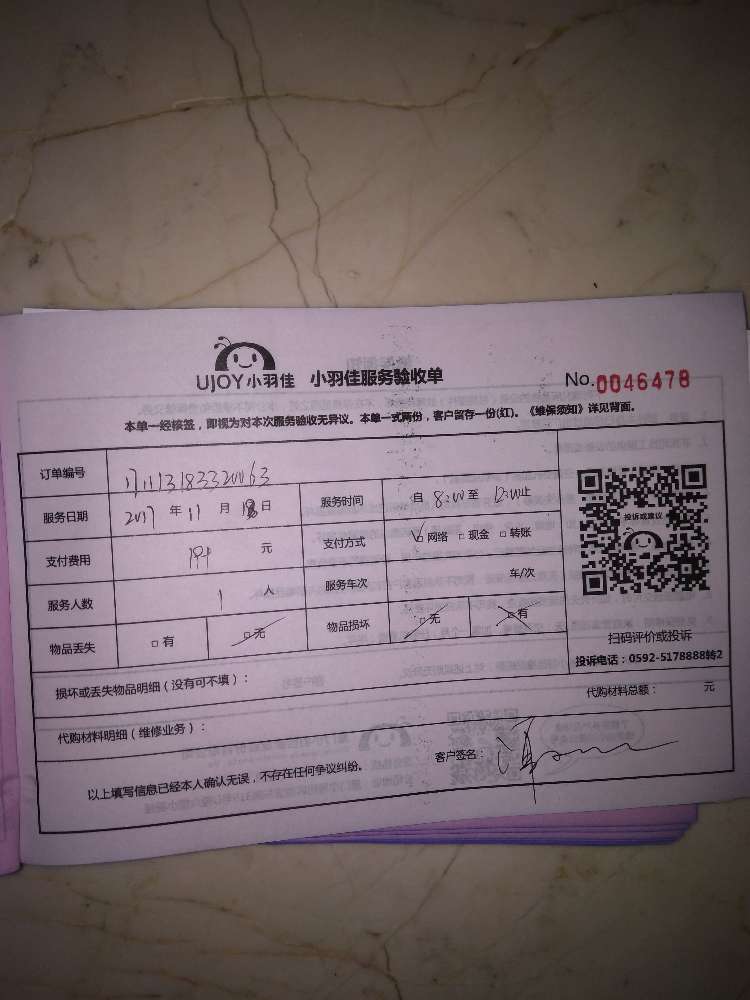 UJOY小羽佳 小羽佳服务验收单 No.0046478
本单一经核签，即视为对本次服务验收无异议。本单一式两份，客户留存一份(红)。《维保须知》详见背面。
订单编号 1711131833320063
服务日期 2017 年 11 月 18 日 服务时间 自 8:00 至 12:00 止
支付费用 元 支付方式 网络 现金 转账
服务人数 1 人 服务车次 车/次
物品丢失 有 无 物品损坏 无 有
投诉或建议
扫码评价或投诉
投诉电话：0592-5178888转2
损坏或丢失物品明细（没有可不填）：
代购材料明细（维修业务）： 代购材料总额： 元
以上填写信息已经本人确认无误，不存在任何争议纠纷。 客户签名：